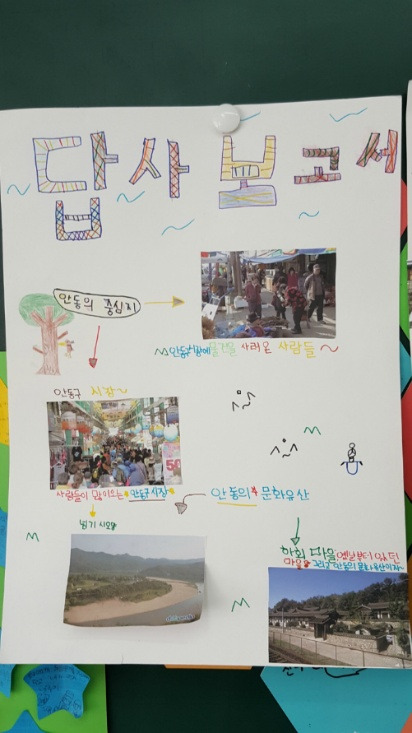 답사 보고서
안동의 중심지
안동구시장에 물건을 사러온 사람들~
안동구 시장~
50
사람들이 많이오는 안동구시장
안동의 문화유산
넘기시오
하회 마을 옛날부터 있던
마을 그리고 안동의 문화유산이자~